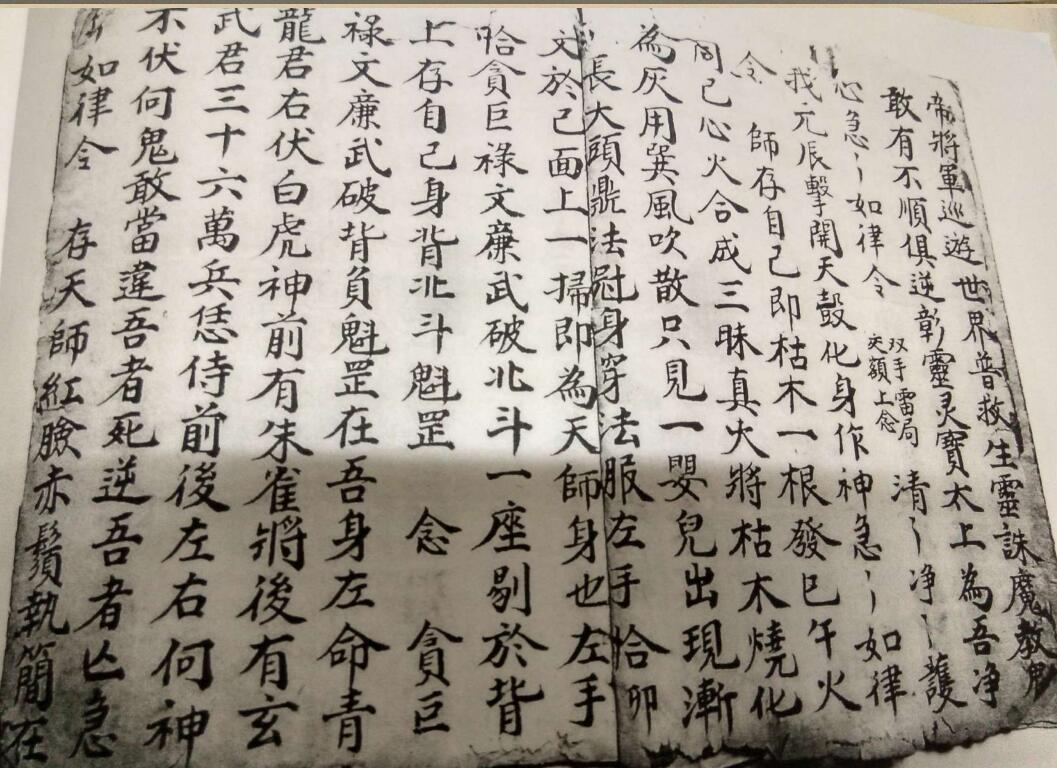 帝將軍巡遊世界普救生靈誅魔教
敢有不順俱逆彰靈灵寶太上為吾净
心急〻如律令
双手雷局
夹額上念
清〻净〻護
我元辰擊開天鼓化身作神急〻如律
令
師存自己即枯木一根發巳午火
同己心火合成三昧真火將枯木燒化
為灰用巽風吹散只見一嬰兒出現漸
長大頭鼎法冠身穿法服左手恰卯
文於己面上一掃即為天師身也左手
哈貪巨祿文廉武破北斗一座剔於背
上存自己身背北斗魁罡 念 貪巨
祿文廉武破背負魁罡在吾身左命青
龍君右伏白虎神前有朱雀將後有玄
武君三十六萬兵恁侍前後左右何神
不伏何鬼敢當違吾者死逆吾者亾急
如律令 存天師紅臉赤鬚執簡在